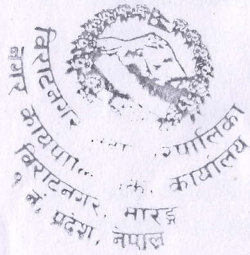 विराटनगर रपालिका
नगर कार्यपा कार्यालय
विराटनगर, मोरङ्ग
१ नं. प्रदेश, नेपाल